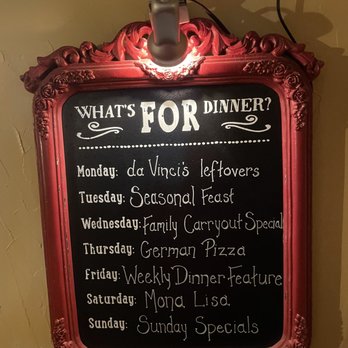 WHAT'S FOR DINNER?
Monday: da Vinci's leftovers
Tuesday: Seasonal Feast
Wednesday: Family Carryout Special
Thursday: German Pizza
Friday: Weekly Dinner Feature
Saturday: Mona Lisa
Sunday: Sunday Specials